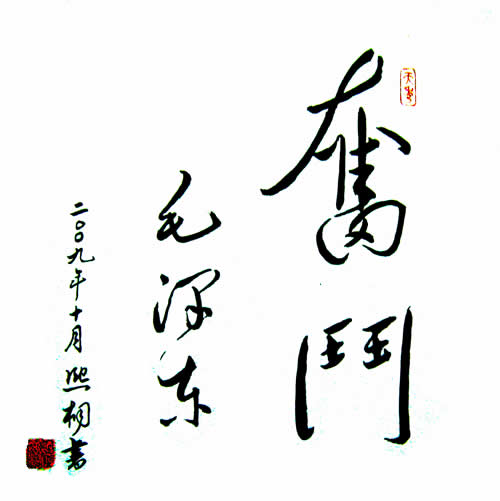 奮鬥
毛泽东
二〇〇九年十月熙桐書